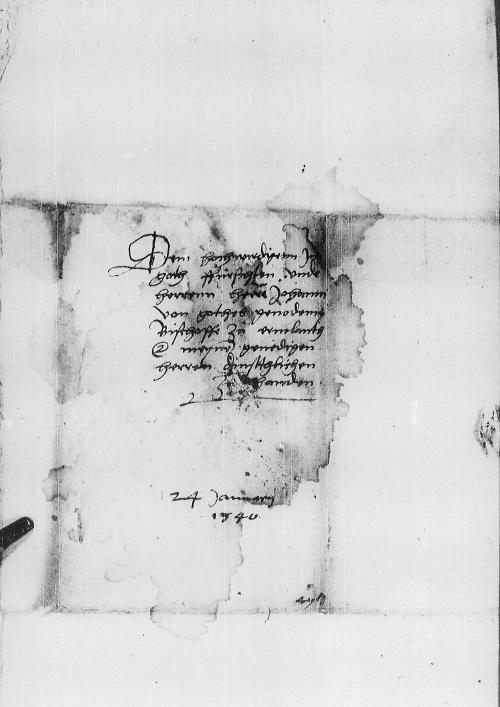 Dem hochwirdigenn In
goth ffursthen unde
herrenn herrn Johann
von gothes genodenn
Bischoffe zu ermlanth
meyne genedigen
herren
handen
24 Januarii
1540